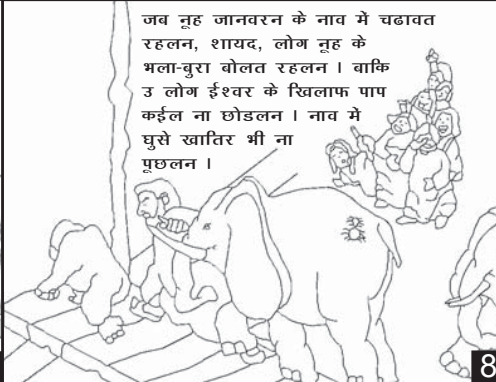 जब नूह जानवरन के नाव में चढावत
रहलन, शायद, लोग नूह के
भला-बुरा बोलत रहलन । बाकि
उ लोग ईश्वर के खिलाफ पाप
कईल ना छोडलन । नाव में
घुसे खातिर भी ना
पूछलन ।
8